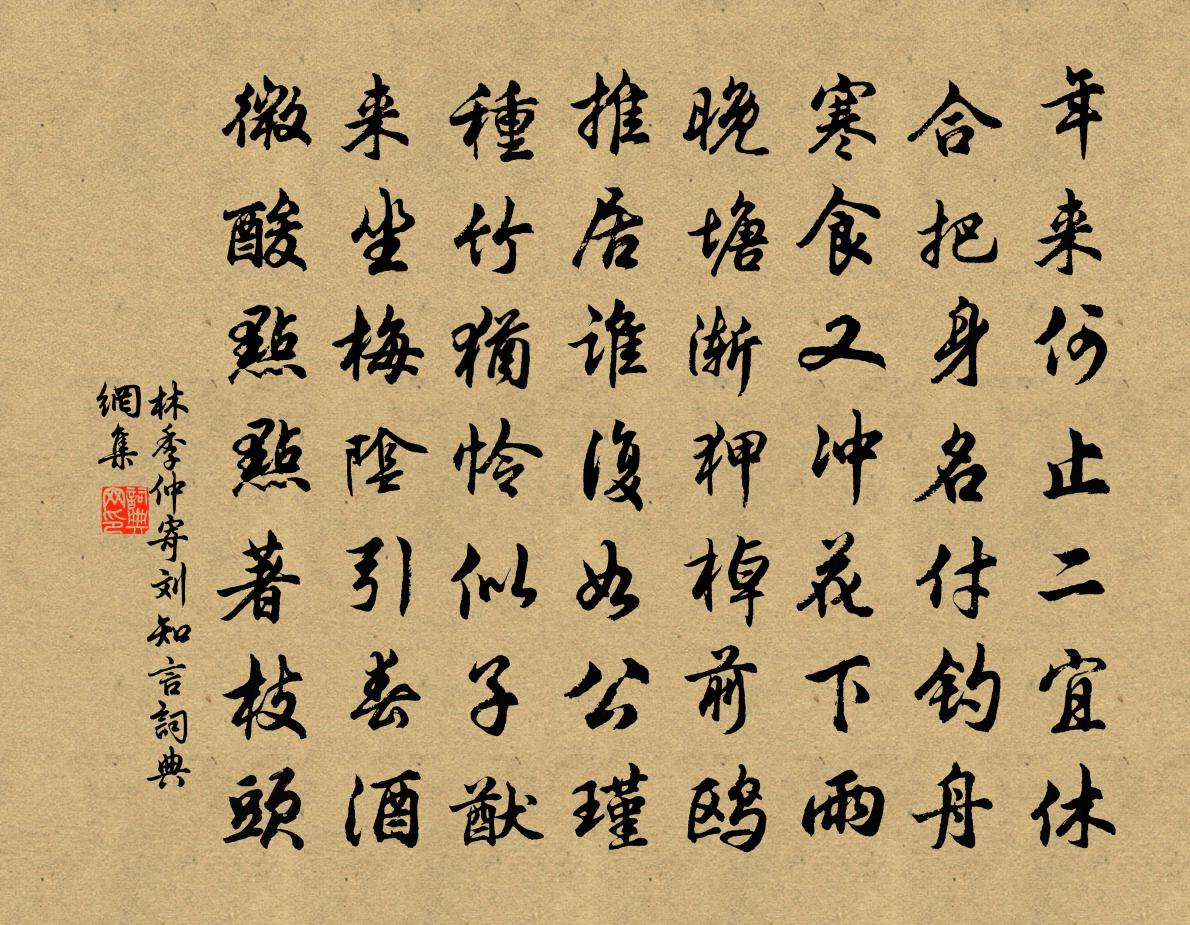 年来何止二宜休
合把身名付钓舟
寒食又冲花下雨
晚塘渐狎棹前鸥
推居谁復如公瑾
種竹犹怜似子猷
来坐梅陰引春酒
微酸點點著枝頭
林季仲寄刘知言詞典
網集
詞典
网印